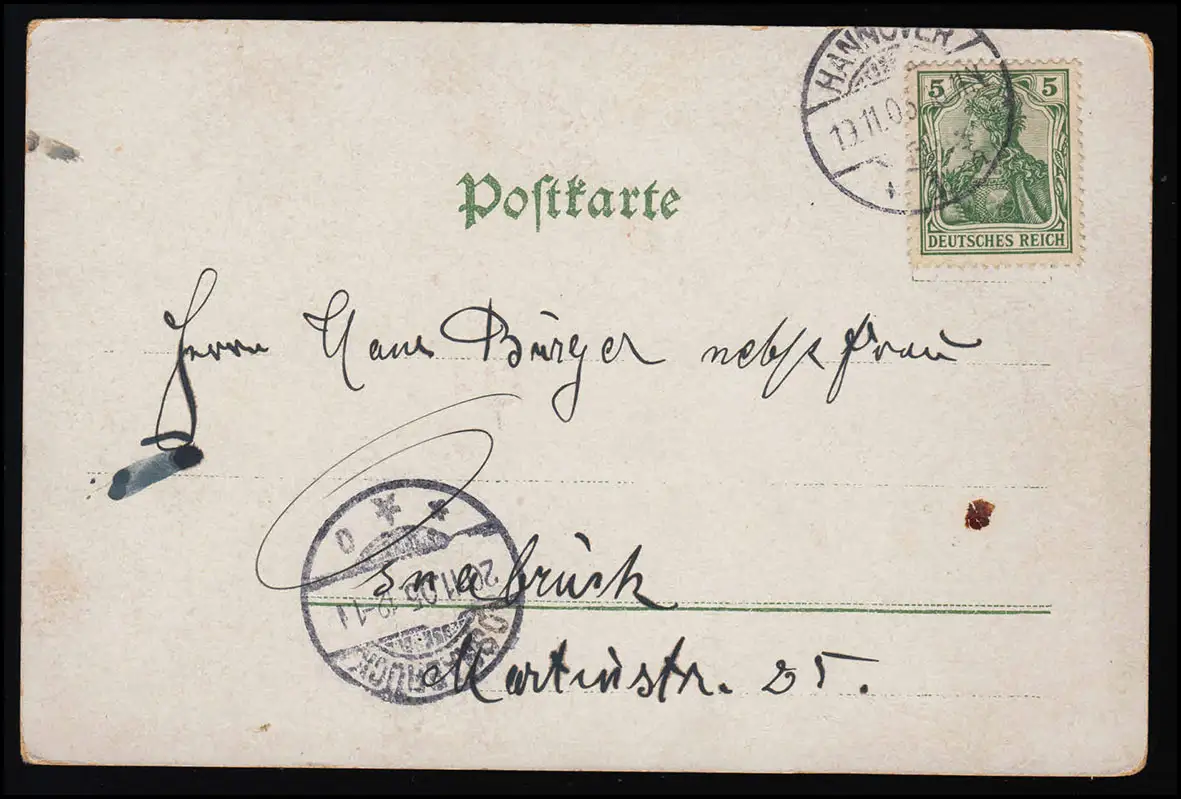 HANNOVER
19.11.05
5 5
DEUTSCHES REICH
Postkarte
Herrn Hans Bürger nebst Frau
Osnabrück
20.11.05. 12-1
OSNABRÜCK
Martinstr. 25.